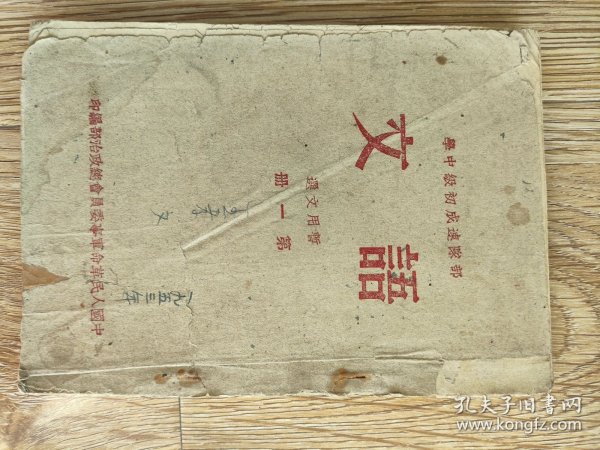 部隊速成初級中學
語文
暫用文選
第一册
一九五三年
中國人民革命軍事委員會總政治部編印
孔夫子旧书网
www.kongfz.com